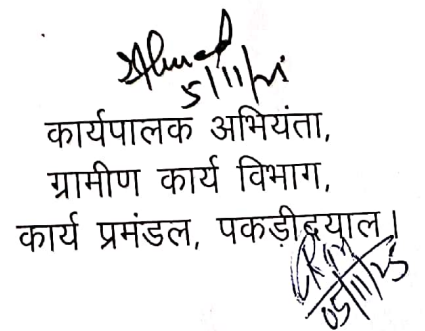 5/11/25
कार्यपालक अभियंता,
ग्रामीण कार्य विभाग,
कार्य प्रमंडल, पकड़ीदयाल।
05/11/25